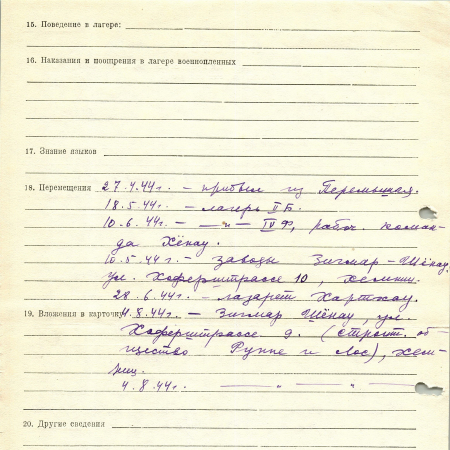 15. Поведение в лагере:
16. Наказания и поощрения в лагере военнопленных
17. Знание языков
18. Перемещения 27.4.44г. – прибыл из Перемышля.
18.5.44г. – лагерь II Б.
10.6.44г. – –"– IV Ф, рабоч. коман-
да Хёнау.
10.5.44г. – заводы Зигмар-Шёнау,
ул. Хоферштрассе 10, Хемниц.
28.6.44г. – лазарет Хартхау.
19. Вложения в карточку 4.8.44г. – Зигмар Шёнау, ул.
Хоферштрассе 9. (строит. об-
щество Рункe и Лос), Хем-
ниц.
4.8.44г. –"–"–
20. Другие сведения